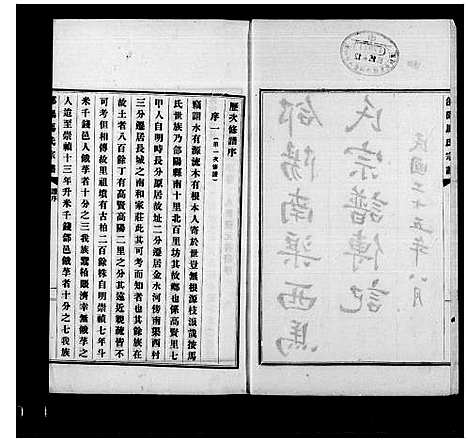 民國二十五年八月
氏宗譜傳記
郃陽南渠西馬
歷次修譜序
序一（第一次修譜）
竊謂水有源流木有根本人寄於世豈無根源枝派哉按馬
氏世族乃郃陽縣南十里北百里坊其故鄉也係高賢里七
甲人自明時長分原居故址二分遷居金水河傍南渠西村
三分遷居長城之南和家莊此其可考而知者也其餘族在
故土者八百餘丁有高賢高陽二里之分其遠近親疏皆不
可得而考矣里故祖墳有古柏二百餘株自明崇禎七年斗
米千錢邑人餓莩者十分之三我族蠶柏賑濟幸無餓莩又
人造至崇禎十三年升米千錢郃邑餓莩者十分之七我族